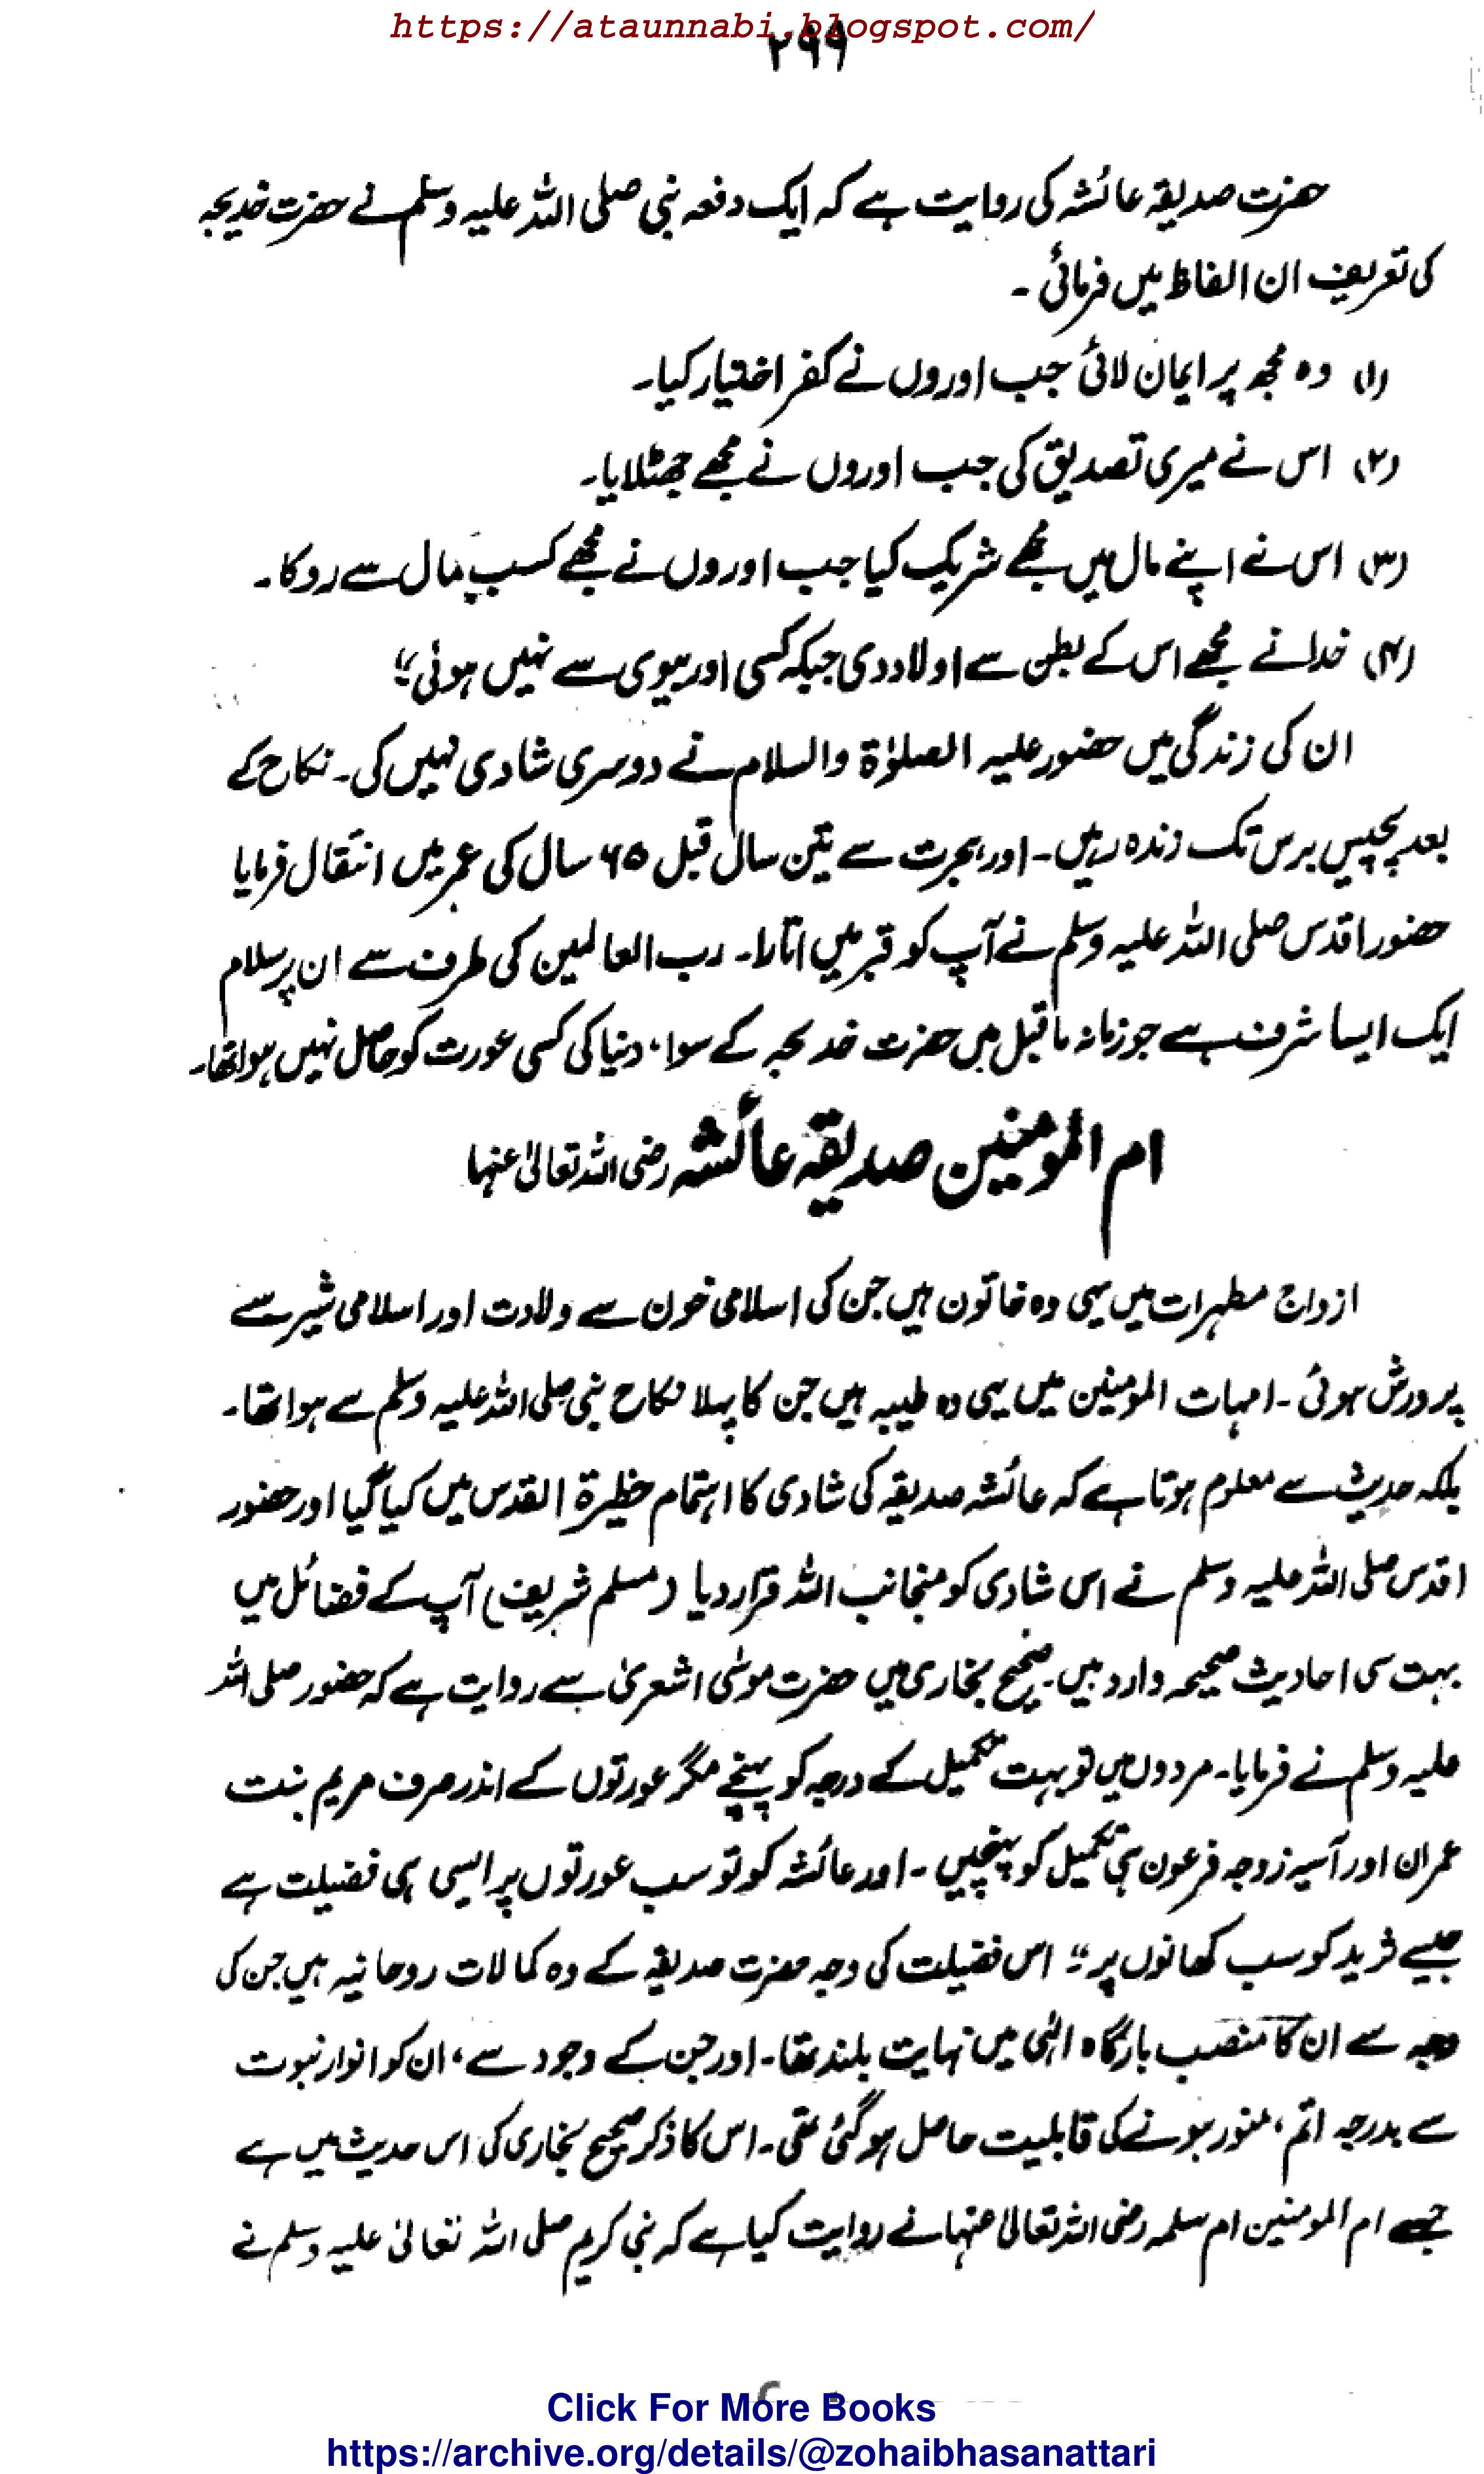 https://ataunnabi.blogspot.com/
۲۹۹
حضرت صدیقہ عائشہ کی روایت ہے کہ ایک دفعہ نبی صلی اللہ علیہ وسلم نے حضرت خدیجہ
کی تعریف ان الفاظ میں فرمائی ۔
(۱) وہ مجھ پر ایمان لائی جب اوروں نے کفر اختیار کیا۔
(۲) اس نے میری تصدیق کی جب اوروں نے مجھے جھٹلایا۔
(۳) اس نے اپنے مال میں مجھے شریک کیا جب اوروں نے مجھے کسب مال سے روکا ۔
(۴) خدا نے مجھے اس کے بطن سے اولاد دی جبکہ کسی اور بیوی سے نہیں ہوئی"
ان کی زندگی میں حضور علیہ الصلوٰۃ والسلام نے دوسری شادی نہیں کی۔ نکاح کے
بعد پچیس برس تک زندہ رہیں۔ اور ہجرت سے تین سال قبل ۶۵ سال کی عمر میں انتقال فرمایا
حضور اقدس صلی اللہ علیہ وسلم نے آپ کو قبر میں اتارا۔ رب العالمین کی طرف سے ان پر سلام
ایک ایسا شرف ہے جو زمانہ ماقبل میں حضرت خدیجہ کے سوا، دنیا کی کسی عورت کو حاصل نہیں ہوا تھا۔
ام المومنین صدیقہ عائشہ رضی اللہ تعالیٰ عنہا
ازواج مطہرات میں یہی وہ خاتون ہیں جن کی اسلامی خون سے ولادت اور اسلامی شیر سے
پرورش ہوئی ۔ امہات المومنین میں یہی وہ طیبہ ہیں جن کا پہلا نکاح نبی صلی اللہ علیہ وسلم سے ہوا تھا۔
بلکہ حدیث سے معلوم ہوتا ہے کہ عائشہ صدیقہ کی شادی کا اہتمام حظیرۃ القدس میں کیا گیا اور حضور
اقدس صلی اللہ علیہ وسلم نے اس شادی کو منجانب اللہ قرار دیا (مسلم شریف) آپ کے فضائل میں
بہت سی احادیث صحیحہ وارد ہیں۔ صحیح بخاری میں حضرت موسٰی اشعریٰ سے روایت ہے کہ حضور صلی اللہ
علیہ وسلم نے فرمایا۔ مردوں میں تو بہت تکمیل کے درجہ کو پہنچے مگر عورتوں کے اندر صرف مریم بنت
عمران اور آسیہ زوجہ فرعون ہی تکمیل کو پہنچیں ۔ اور عائشہ کو تو سب عورتوں پر ایسی ہی فضیلت ہے
جیسے ثرید کو سب کھانوں پر" اس فضیلت کی وجہ حضرت صدیقہ کے وہ کمالات روحانیہ ہیں جن کی
وجہ سے ان کا منصب بارگاہ الٰہی میں نہایت بلند تھا۔ اور جن کے وجود سے، ان کو انوار نبوت
سے بدرجہ اتم، منور ہونے کی قابلیت حاصل ہو گئی تھی۔ اس کا ذکر صحیح بخاری کی اس حدیث میں ہے
جسے ام المومنین ام سلمہ رضی اللہ تعالیٰ عنہا نے روایت کیا ہے کہ نبی کریم صلی اللہ تعالیٰ علیہ وسلم نے
Click For More Books
https://archive.org/details/@zohaibhasanattari